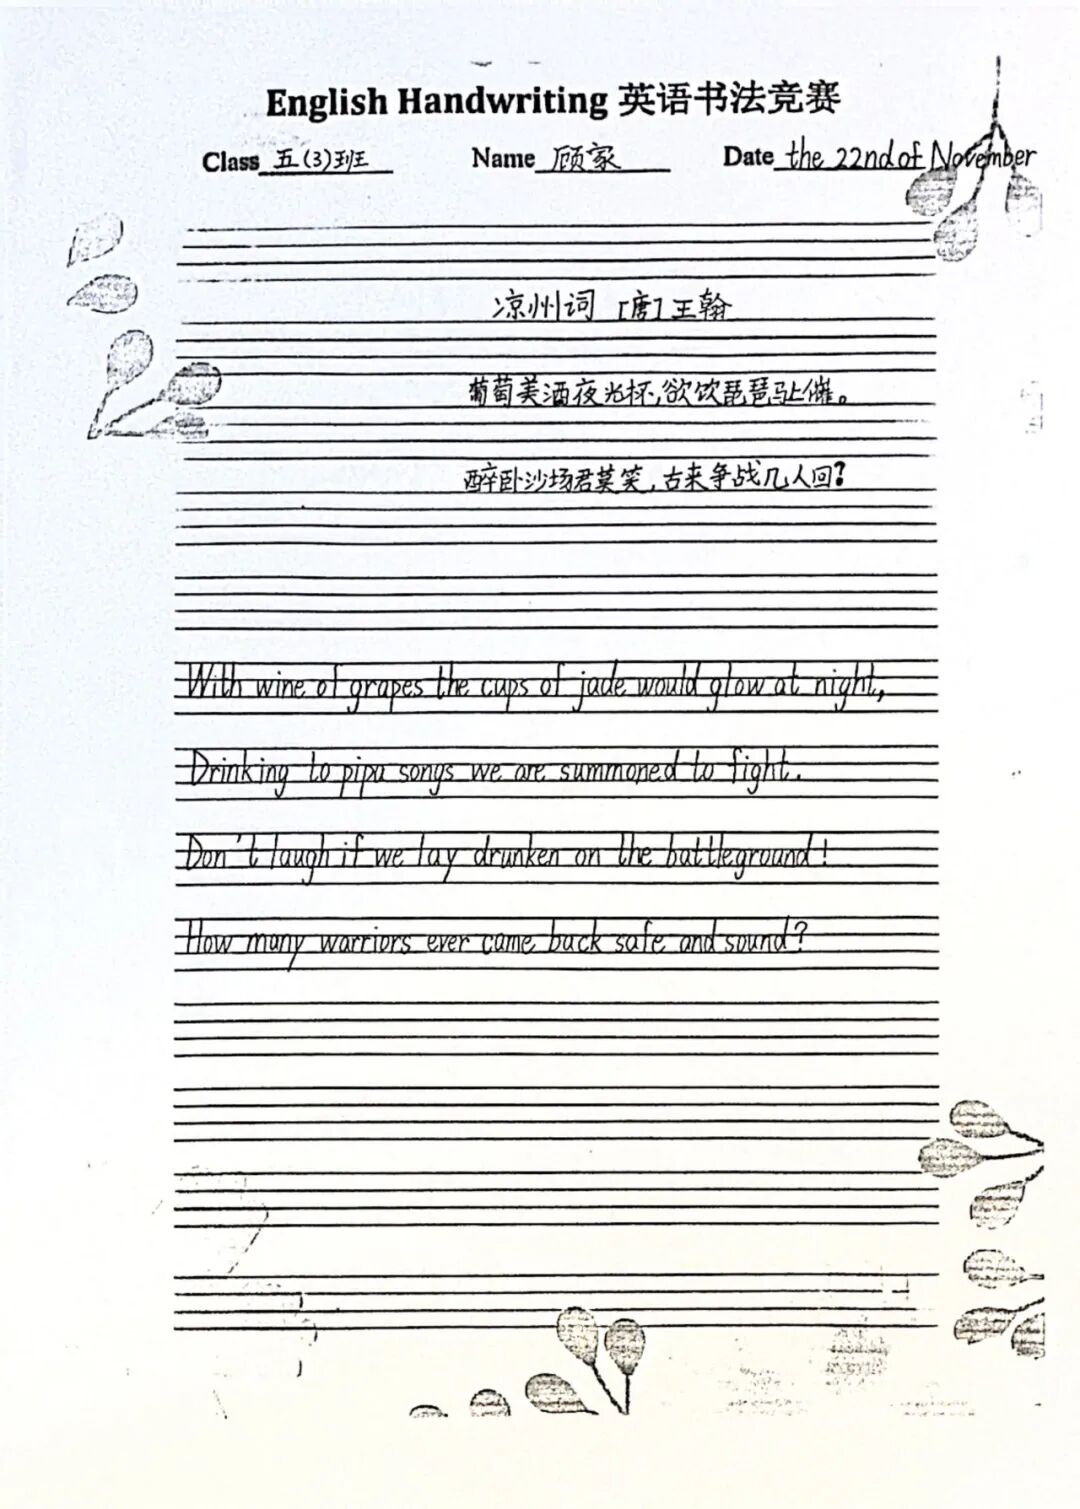 English Handwriting 英语书法竞赛
Class 五(3)班 Name 顾家 Date the 22nd of November
凉州词 [唐]王翰
葡萄美酒夜光杯,欲饮琵琶马上催。
醉卧沙场君莫笑,古来争战几人回?
With wine of grapes the cups of jade would glow at night,
Drinking to pipa songs we are summoned to fight.
Don't laugh if we lay drunken on the battleground!
How many warriors ever came back safe and sound?